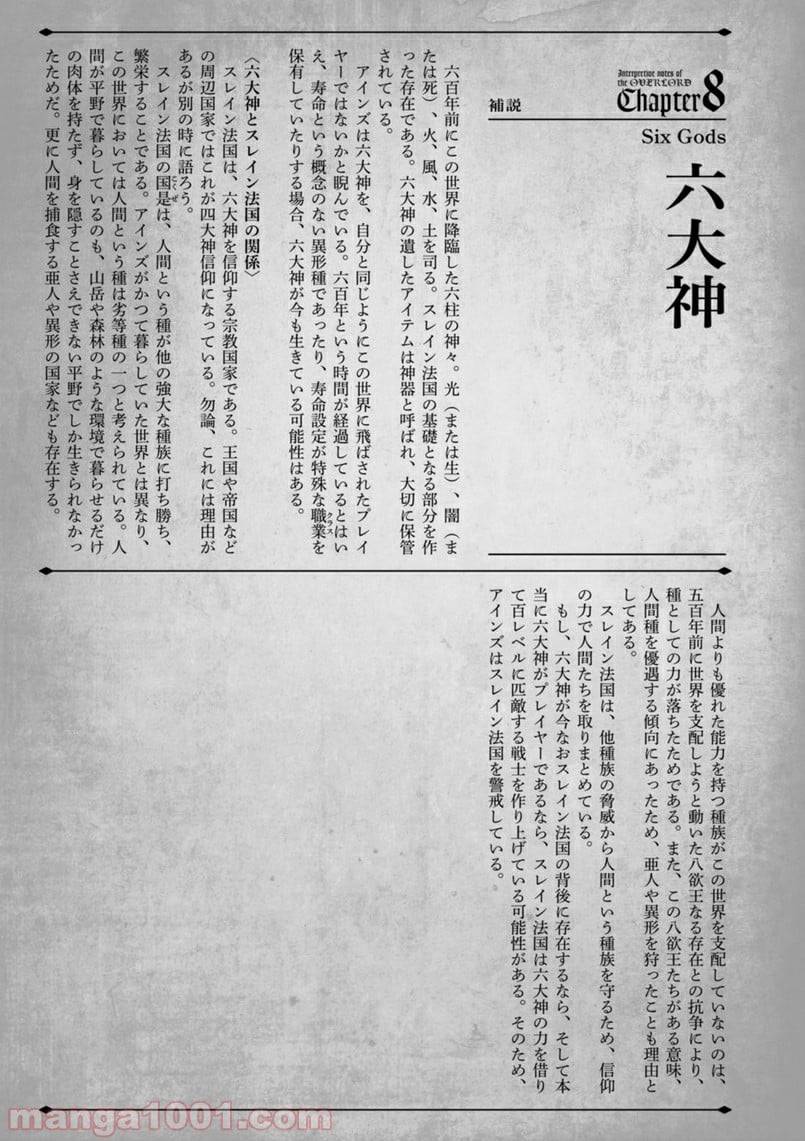 Interpretive notes of
the OVERLORD
Chapter8
補説
Six Gods
六大神
六百年前にこの世界に降臨した六柱の神々。光(または生)、闇(ま
たは死)、火、風、水、土を司る。スレイン法国の基礎となる部分を作
った存在である。六大神の遺したアイテムは神器と呼ばれ、大切に保管
されている。
アインズは六大神を、自分と同じようにこの世界に飛ばされたプレイ
ヤーではないかと睨んでいる。六百年という時間が経過しているとはい
え、寿命という概念のない異形種であったり、寿命設定が特殊な職業を
クラス
保有していたりする場合、六大神が今も生きている可能性はある。
〈六大神とスレイン法国の関係〉
スレイン法国は、六大神を信仰する宗教国家である。王国や帝国など
の周辺国家ではこれが四大神信仰になっている。勿論、これには理由が
あるが別の時に語ろう。
スレイン法国の国是は、人間という種が他の強大な種族に打ち勝ち、
こくぜ
繁栄することである。アインズがかつて暮らしていた世界とは異なり、
この世界においては人間という種は劣等種の一つと考えられている。人
間が平野で暮らしているのも、山岳や森林のような環境で暮らせるだけ
の肉体を持たず、身を隠すことさえできない平野でしか生きられなかっ
たためだ。更に人間を捕食する亜人や異形の国家なども存在する。
人間よりも優れた能力を持つ種族がこの世界を支配していないのは、
五百年前に世界を支配しようと動いた八欲王なる存在との抗争により、
種としての力が落ちたためである。また、この八欲王たちがある意味、
人間種を優遇する傾向にあったため、亜人や異形を狩ったことも理由と
してある。
スレイン法国は、他種族の脅威から人間という種族を守るため、信仰
の力で人間たちを取りまとめている。
もし、六大神が今なおスレイン法国の背後に存在するなら、そして本
当に六大神がプレイヤーであるなら、スレイン法国は六大神の力を借り
て百レベルに匹敵する戦士を作り上げている可能性がある。そのため、
アインズはスレイン法国を警戒している。
manga1001.com